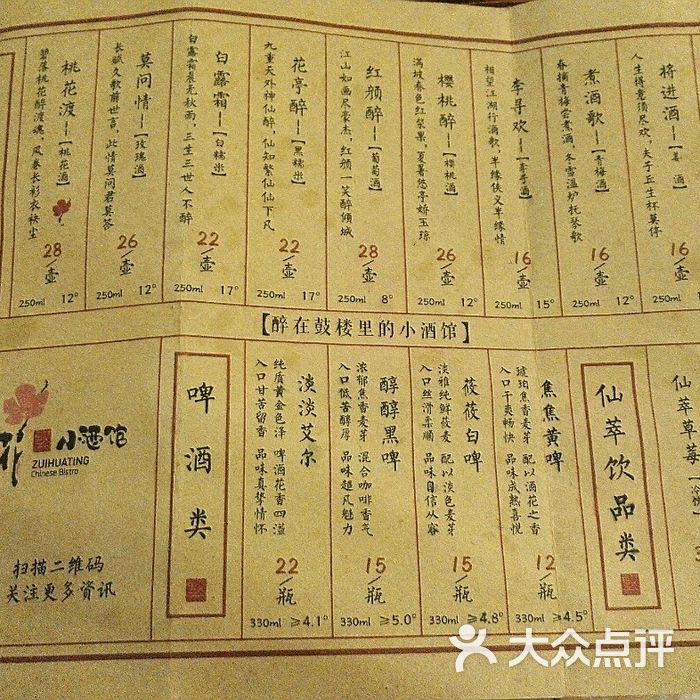 将进酒——【姜 酒】
人生得意须尽欢，夫子丘生杯莫停
16/壶
250ml
煮酒歌——【青梅酒】
春摘青梅尝煮酒，冬雪温炉抚琴歌
16/壶
250ml 12°
李寻欢——【李子酒】
相望江湖行酒歌，半缘侠义半缘情
16/壶
250ml 15°
樱桃醉——【樱桃酒】
满坡春色红浆果，夏暑悠亭娇玉琼
26/壶
250ml 12°
红颜醉——【葡萄酒】
江山如画尽豪杰，红颜一笑醉倾城
28/壶
250ml 8°
花亭醉——【黑糯米】
九重天外神仙醉，仙知繁仙仙下凡
22/壶
250ml 17°
白露霜——【白糯米】
白露霜晨无秋雨，三生三世人不醉
22/壶
250ml 17°
莫问情——【玫瑰酒】
长赋久歌前世言，此情莫问君莫答
26/壶
250ml 12°
桃花渡——【桃花酒】
碧落桃花醉渡魂，风卷长衫衣袂尘
28/壶
250ml 12°
【醉在鼓楼里的小酒馆】
仙萃草莓
仙萃饮品类
焦焦黄啤
琥珀焦香麦芽 配以酒花之香
入口干爽畅快 品味成熟喜悦
12/瓶
330ml ≥4.5°
莜莜白啤
淡雅纯鲜莜麦 配以淡色麦芽
入口丝滑柔顺 品味自信从容
15/瓶
330ml ≥4.8°
醇醇黑啤
浓郁焦香麦芽 混合咖啡香气
入口低苦醇厚 品味超凡魅力
15/瓶
330ml ≥5.0°
淡淡艾尔
纯质黄金色泽 啤酒花香四溢
入口甘苦留香 品味真挚情怀
22/瓶
330ml ≥4.1°
啤酒类
花 小酒馆
ZUIHUATING
Chinese Bistro
扫描二维码
关注更多资讯
大众点评